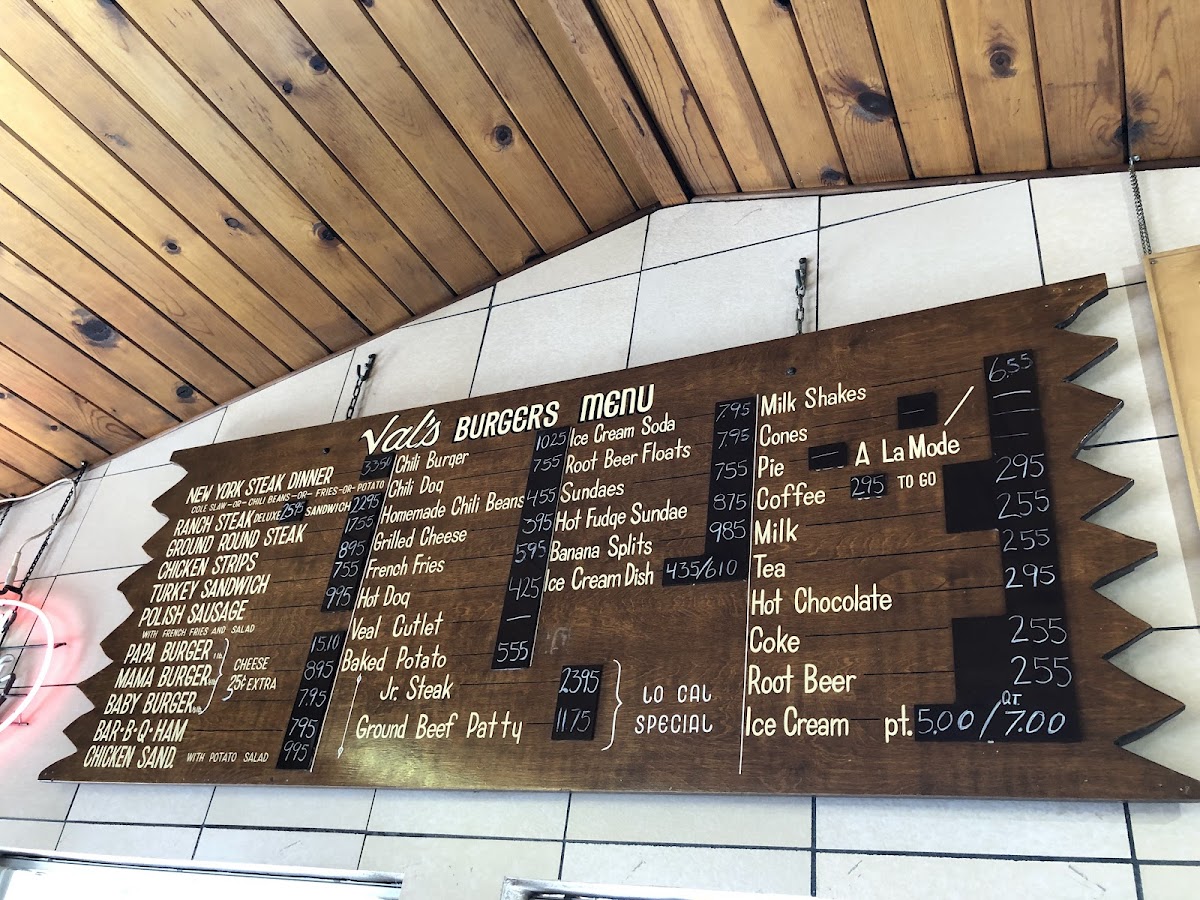 Val's BURGERS MENU
NEW YORK STEAK DINNER 3350
COLE SLAW-OR-CHILI BEANS-OR-FRIES-OR-POTATO
RANCH STEAK DELUXE 2595 SANDWICH 2295
GROUND ROUND STEAK 1755
CHICKEN STRIPS 895
TURKEY SANDWICH 755
POLISH SAUSAGE 995
WITH FRENCH FRIES AND SALAD
PAPA BURGER 15.10
MAMA BURGER 895
BABY BURGER 7.95
CHEESE
35¢ EXTRA
BAR-B-Q-HAM 795
CHICKEN SAND. WITH POTATO SALAD 995
Chili Burger 1025
Chili Dog 755
Homemade Chili Beans 455
Grilled Cheese 395
French Fries 595
Hot Dog 425
Veal Cutlet —
Baked Potato 555
Jr. Steak 2395
Ground Beef Patty 1175
LO CAL
SPECIAL
Ice Cream Soda 7.95
Root Beer Floats 7.95
Sundaes 755
Hot Fudge Sundae 875
Banana Splits 985
Ice Cream Dish 435/610
Milk Shakes 6.55
Cones / —
Pie — A La Mode —
Coffee 295 TO GO 295
Milk 255
Tea 255
Hot Chocolate 295
Coke 255
Root Beer 255
Ice Cream pt. 5.00 / QT. 7.00